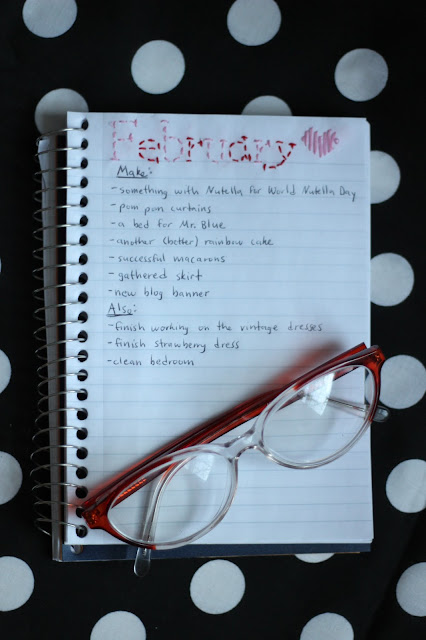 February
Make:
-something with Nutella for World Nutella Day
-pom pom curtains
-a bed for Mr. Blue
-another (better) rainbow cake
-successful macarons
-gathered skirt
-new blog banner
Also:
-finish working on the vintage dresses
-finish strawberry dress
-clean bedroom